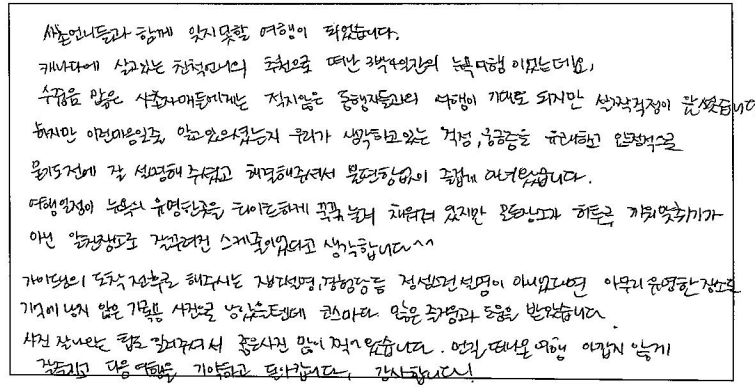 사촌언니들과 함께 잊지못할 여행이 되었습니다.
캐나다에 살고있는 친척언니의 추천으로 떠난 3박4일간의 뉴욕여행이었는데요,
수줍음 많은 사촌자매들에게는 적지않은 동행자들과의 여행이 기대도 되지만 살짝걱정이 앞섰습니다
하지만 이런마음일줄 알고있으셨는지 우리가 생각하고있는 걱정, 궁금증을 유쾌하고 안정적으로
묻기도전에 잘 설명해주셨고 해결해주셔서 불편함없이 즐겁게 다녀왔습니다.
여행일정이 뉴욕의 유명한곳을 타이트하게 꾹꾹 눌러 채워져 있지만 모든장소가 허투루 끼워맞춰기가
아닌 알찬장소로 잘꾸려진 스케줄이었다고 생각합니다^^
가이드님의 도착전후로 해주시는 장소설명, 경험담등 정성스런설명이 아니었다면 아무리유명한 장소도
기억에 남지 않은 기록용 사진으로 남았을텐데 코스마다 많은 즐거움과 도움을 받았습니다
사진 잘나오는 팁도 알려주셔서 좋은사진 많이 찍어 왔습니다. 먼길 떠나온 여행 아깝지 않게
잘즐기고 다음여행을 기약하고 돌아갑니다, 감사합니다!